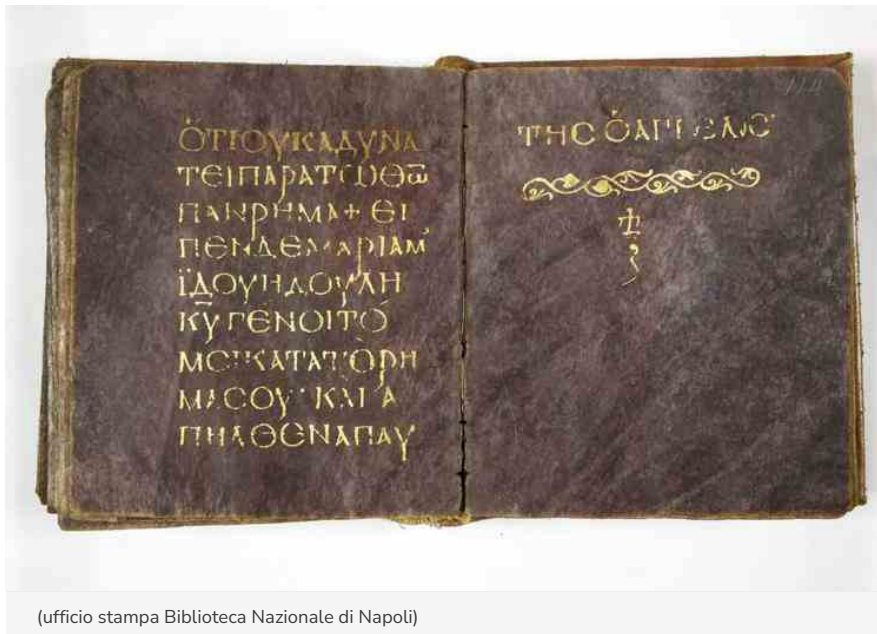 ὍΤΙΟΥΚΑΔΥΝΑ
ΤΕΙΠΑΡΑΤΩΘΩ̅
ΠΑΝΡΗΜΑ+ ΕΙ
ΠΕΝΔΕΜΑΡΙΑΜ
ΪΔΟΥΗΔΟΥΛΗ
Κ̅Υ̅ ΓΈΝΟΙΤΌ
ΜΟΙΚΑΤΑΤῸΡΗ
ΜΑΣΟΥ· ΚΑΙ Ἀ
ΠΗΛΘΕΝΑΠΑΥ
ΤΗΣ ὉΑΓΓΕΛΟΣ·
114
(ufficio stampa Biblioteca Nazionale di Napoli)